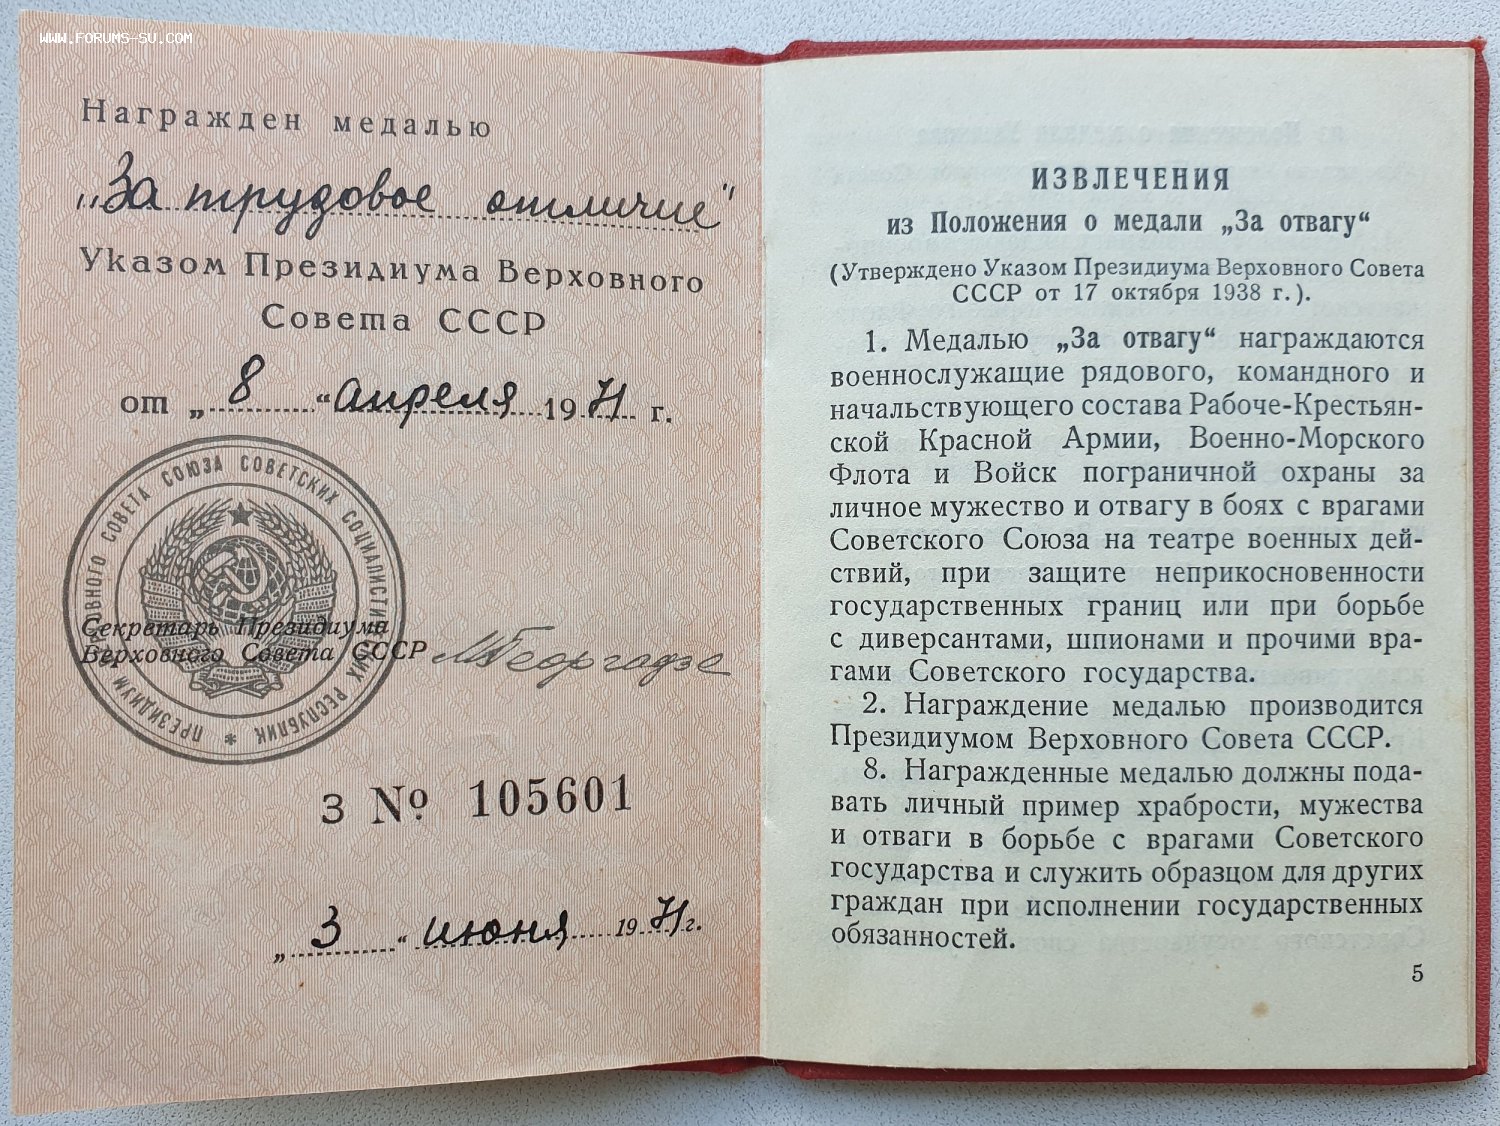 WWW.FORUMS-SU.COM
Награжден медалью
„За трудовое отличие"
Указом Президиума Верховного
Совета СССР
от „8“ апреля 1971 г.
ПРЕЗИДИУМ ВЕРХОВНОГО СОВЕТА СОЮЗА СОВЕТСКИХ СОЦИАЛИСТИЧЕСКИХ РЕСПУБЛИК *
Секретарь Президиума
Верховного Совета СССР МГеоргадзе
З № 105601
„3“ июня 1971 г.
ИЗВЛЕЧЕНИЯ
из Положения о медали „За отвагу“
(Утверждено Указом Президиума Верховного Совета
СССР от 17 октября 1938 г.).
1. Медалью „За отвагу“ награждаются
военнослужащие рядового, командного и
начальствующего состава Рабоче-Крестьян-
ской Красной Армии, Военно-Морского
Флота и Войск пограничной охраны за
личное мужество и отвагу в боях с врагами
Советского Союза на театре военных дей-
ствий, при защите неприкосновенности
государственных границ или при борьбе
с диверсантами, шпионами и прочими вра-
гами Советского государства.
2. Награждение медалью производится
Президиумом Верховного Совета СССР.
8. Награжденные медалью должны пода-
вать личный пример храбрости, мужества
и отваги в борьбе с врагами Советского
государства и служить образцом для других
граждан при исполнении государственных
обязанностей.
5